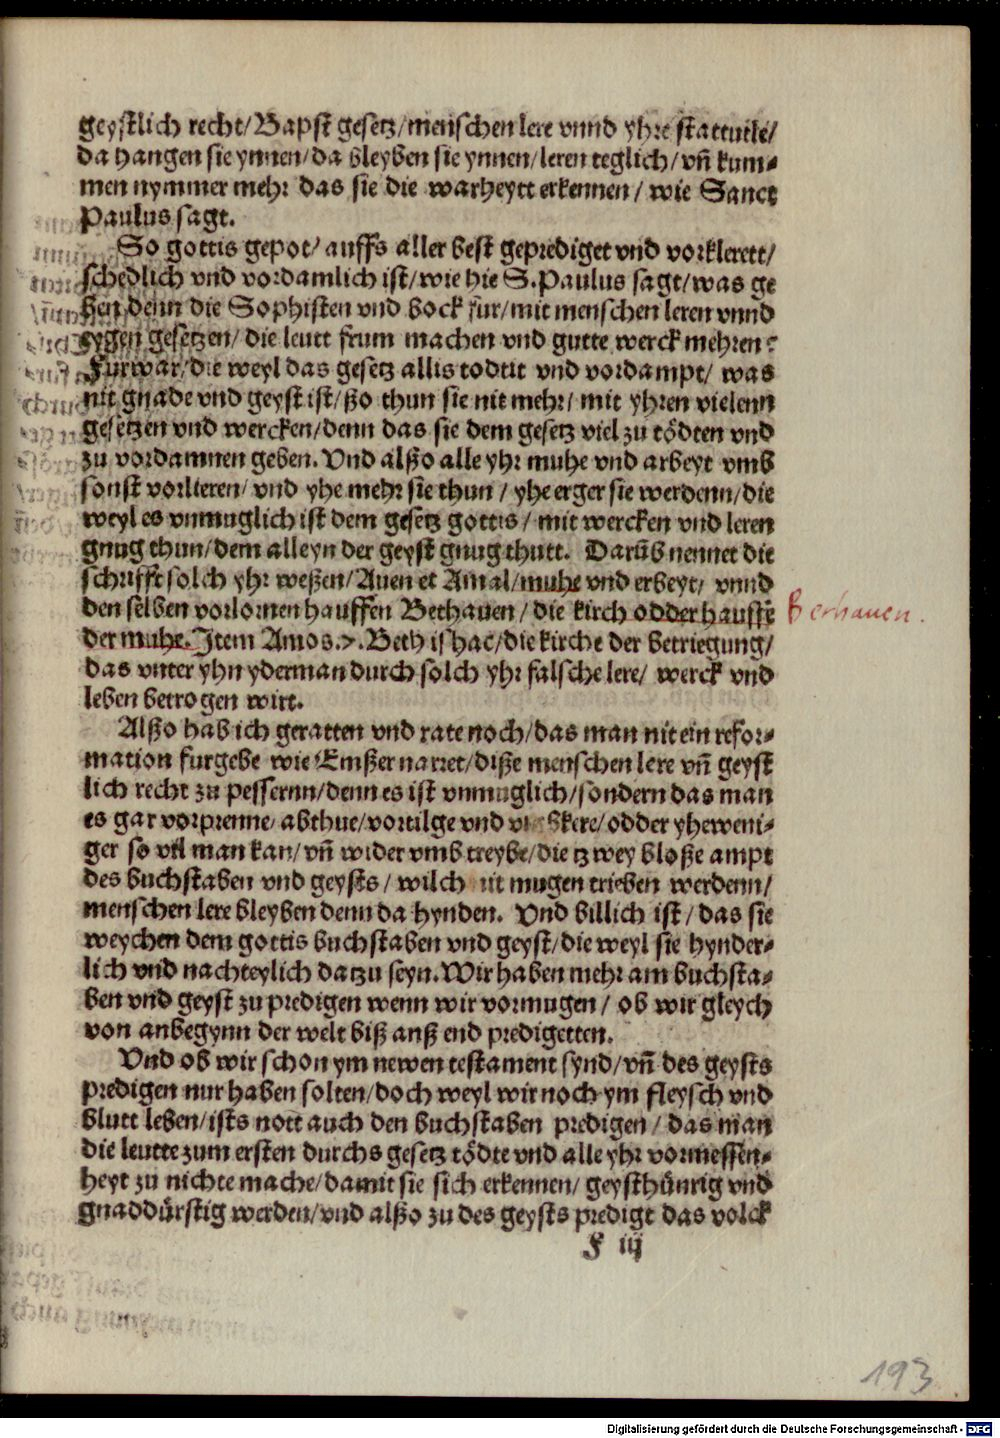 geystlich recht/Bapst gesetz/menschen lere vnnd yhre stattutle/
da hangen sie ynnen/da bleyben sie ynnen/leren teglich/vn̄ kum⸗
men nymmer mehr das sie die warheytt erkennen/ wie Sanct
Paulus sagt.
So gottis gepot/ auffs aller best geprediget vnd vorklerett/
schedlich vnd vordamlich ist/wie hie S.Paulus sagt/was ge
ben denn die Sophisten vnd bock fur/mit menschen leren vnnd
eygen gesetzen/ die leutt frum machen vnd gutte werck mehren?
Furwar/die weyl das gesetz allis todtit vnd vordampt/ was
nit gnade vnd geyst ist/ßo thun sie nit mehr/ mit yhren vielenn
gesetzen vnd wercken/denn das sie dem gesetz viel zu tödten vnd
zu vordamnen geben. Vnd alßo alle yhr muhe vnd arbeyt vmb
sonst vorlieren/ vnd yhe mehr sie thun / yhe erger sie werdenn/die
weyl es vnmuglich ist dem gesetz gottis / mit wercken vnd leren
gnug thun/dem alleyn der geyst gnug thutt. Darūb nennet die
schrifft solch yhr weßen/Auen et Amal/muhe vnd erbeyt/ vnnd
den selben vorlornen hauffen Bethauen/ die kirch odder hauffe
der muhe. Item Amos.7. Beth is hac/die kirche der betriegung/
das vnter yhn yderman durch solch yhr falsche lere/ werck vnd
leben betrogen wirt.
Alßo hab ich geratten vnd rate noch/das man nit ein refor⸗
mation furgebe wie Emßer narret/diße menschen lere vn̄ geyst
lich recht zu pessernn/denn es ist vnmuglich/sondern das man
es gar vorprenne/ abthue/vortilge vnd kere/odder yheweni⸗
ger so vil man kan/vn̄ wider vmb treybe/die tzwey bloße ampt
des buchstaben vnd geysts/ wilch nit mugen trieben werdenn/
menschen lere bleyben denn da hynden. Vnd billich ist/das sie
weychen dem gottis buchstaben vnd geyst/die weyl sie hynder⸗
lich vnd nachteylich dartzu seyn. Wir haben mehr am buchsta⸗
ben vnd geyst zu predigen wenn wir vormugen/ ob wir gleych
von anbegynn der welt biß anß end predigetten.
Vnd ob wir schon ym newen testament synd/vn̄ des geysts
predigen nur haben solten/doch weyl wir noch ym fleysch vnd
blutt leben/ists nott auch den buchstaben predigen/ das man
die leutte zum ersten durchs gesetz tödte vnd alle yhr vormessen⸗
heyt zu nichte mache/damit sie sich erkennen/ geysthünrig vnd
gnaddürstig werden/vnd alßo zu des geysts predigt das volck
F iij
Bethauen.
193
Digitalisierung gefördert durch die Deutsche Forschungsgemeinschaft - DFG